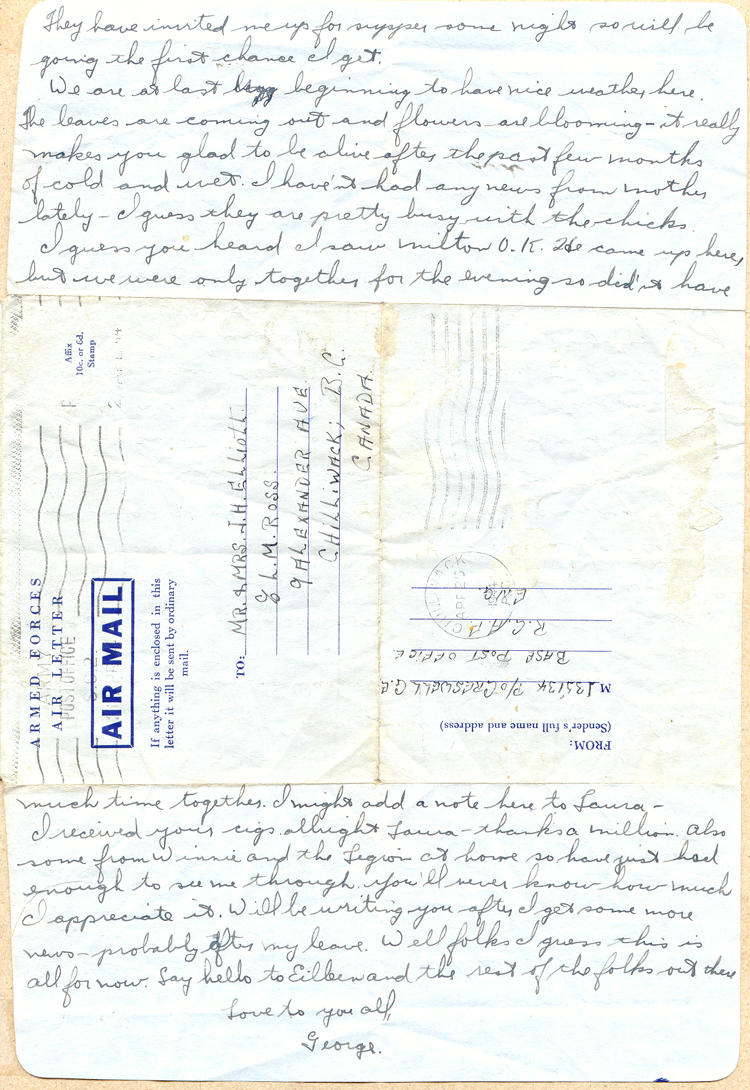 They have invited me up for supper some night so will be
going the first chance I get.
We are at last beginning to have nice weather here.
The leaves are coming out and flowers are blooming - it really
makes you glad to be alive after the past few months
of cold and wet. I have'nt had any news from mother
lately - I guess they are pretty busy with the chicks.
I guess you heard I saw Milton O.K. He came up here,
but we were only together for the evening so did'nt have
ARMED FORCES
AIR LETTER
AIR MAIL
If anything is enclosed in this
letter it will be sent by ordinary
mail.
Affix
10c. or 6d.
Stamp
POST OFFICE
TO:
MR. & MRS. J.H. ELLIOTT.
% L.M. ROSS.
9 ALEXANDER AVE
CHILLIWACK; B.C.
CANADA.
FROM:
(Sender's full name and address)
P/O CRESWELL G.E
BASE POST OFFICE
R.C.A.F.
ENG.
CHILLIWACK
APR 25
much time together. I might add a note here to Laura -
I received your cigs. allright Laura - thanks a million. Also
some from Winnie and the Legion at home so have just had
enough to see me through. You'll never know how much
I appreciate it. Will be writing you after I get some more
news - probably after my leave. Well folks I guess this is
all for now. Say hello to Eileen and the rest of the folks out there
Love to you all,
George.